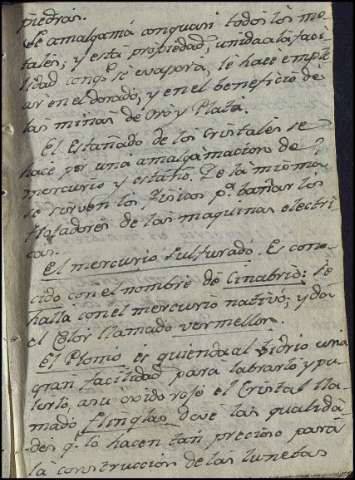 piedras.
Se amalgama conquasi todos los me-
tales; y esta propiedad, unida a la faci-
lidad con q.e se evapora, le hace emple-
ar en el dorado, y en el beneficio de
las minas de Oro y Plata.
El Estañado de los Cristales se
hace por una amalgamacion de
mercurio y estaño. De la misma
se sirven los Fisicos p.a bañar los
frotadores de las maquinas electri-
cas.
El mercurio Sulfurado. Es cono-
cido con el nombre de Cinabrio: se
halla con el mercurio nativo; y da
el Color llamado vermellon.
El Plomo es quien da al Vidrio una
gran facilidad para labrarlo y pu-
lirlo, a su oxido rojo el Cristal lla-
mado flinglas deve las qualida-
des q.e lo hacen tan precioso para
la construccion de las lunetas